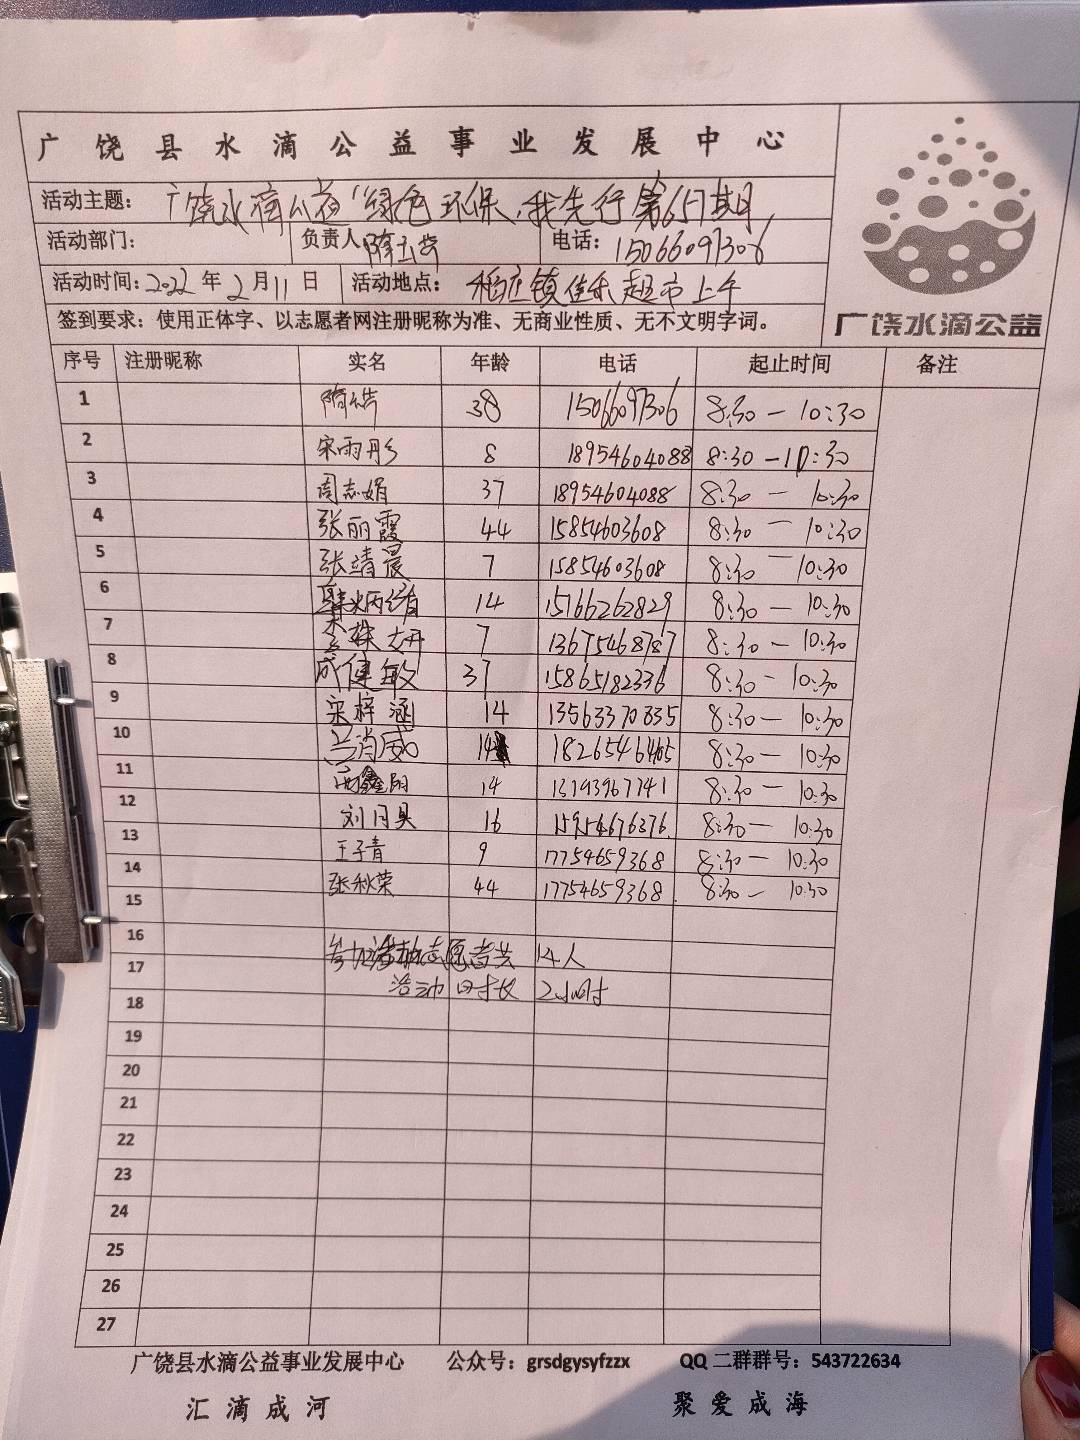 广饶县水滴公益事业发展中心
活动主题：广饶水滴公益"绿色环保，我先行第657期
活动部门： 负责人 电话：15066097306
活动时间：2022年2月11日 活动地点：稻庄镇佳乐超市上午
签到要求：使用正体字、以志愿者网注册昵称为准、无商业性质、无不文明字词。
广饶水滴公益
序号 注册昵称 实名 年龄 电话 起止时间 备注
1 38 15066097306 8:30－10:30
2 宋雨彤 8 18954604088 8:30－10:30
3 周志娟 37 18954604088 8:30－10:30
4 张丽霞 44 15854603608 8:30－10:30
5 张靖晨 7 15854603608 8:30－10:30
6 14 15166262829 8:30－10:30
7 7 13675468787 8:30－10:30
8 成健敏 37 15865182336 8:30－10:30
9 宋梓涵 14 13563370835 8:30－10:30
10 14 8:30－10:30
11 14 8:30－10:30
12 刘月昊 16 15954676376 8:30－10:30
13 王子青 9 17754659368 8:30－10:30
14 张秋荣 44 17754659368 8:30－10:30
15
16 参加活动志愿者共14人
17 活动时长2小时
18
19
20
21
22
23
24
25
26
27
广饶县水滴公益事业发展中心 公众号：grsdgysyfzzx QQ二群群号：543722634
汇滴成河 聚爱成海